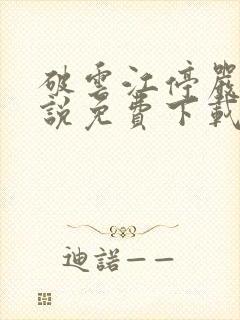 破雲江停嚴
說免費下載
迪諾——